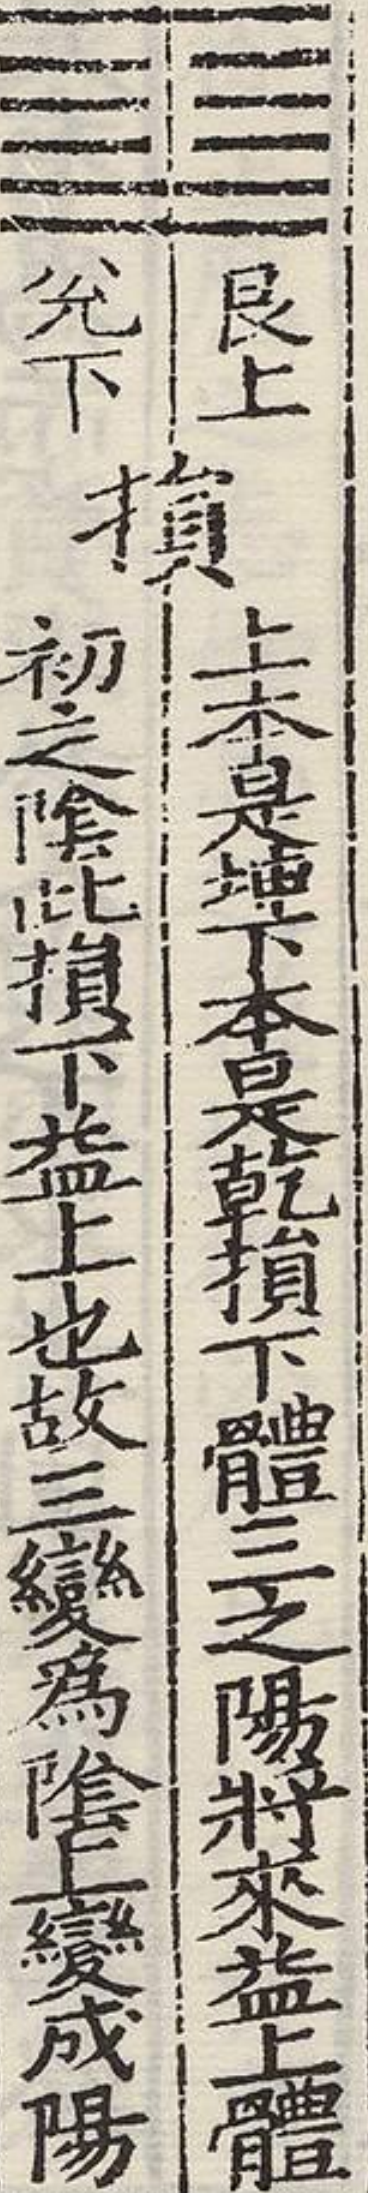 艮上
兊下
損
上本是坤下本是乾損下體三之陽將來益上體
初之陰此損下益上也故三變爲陰上變成陽